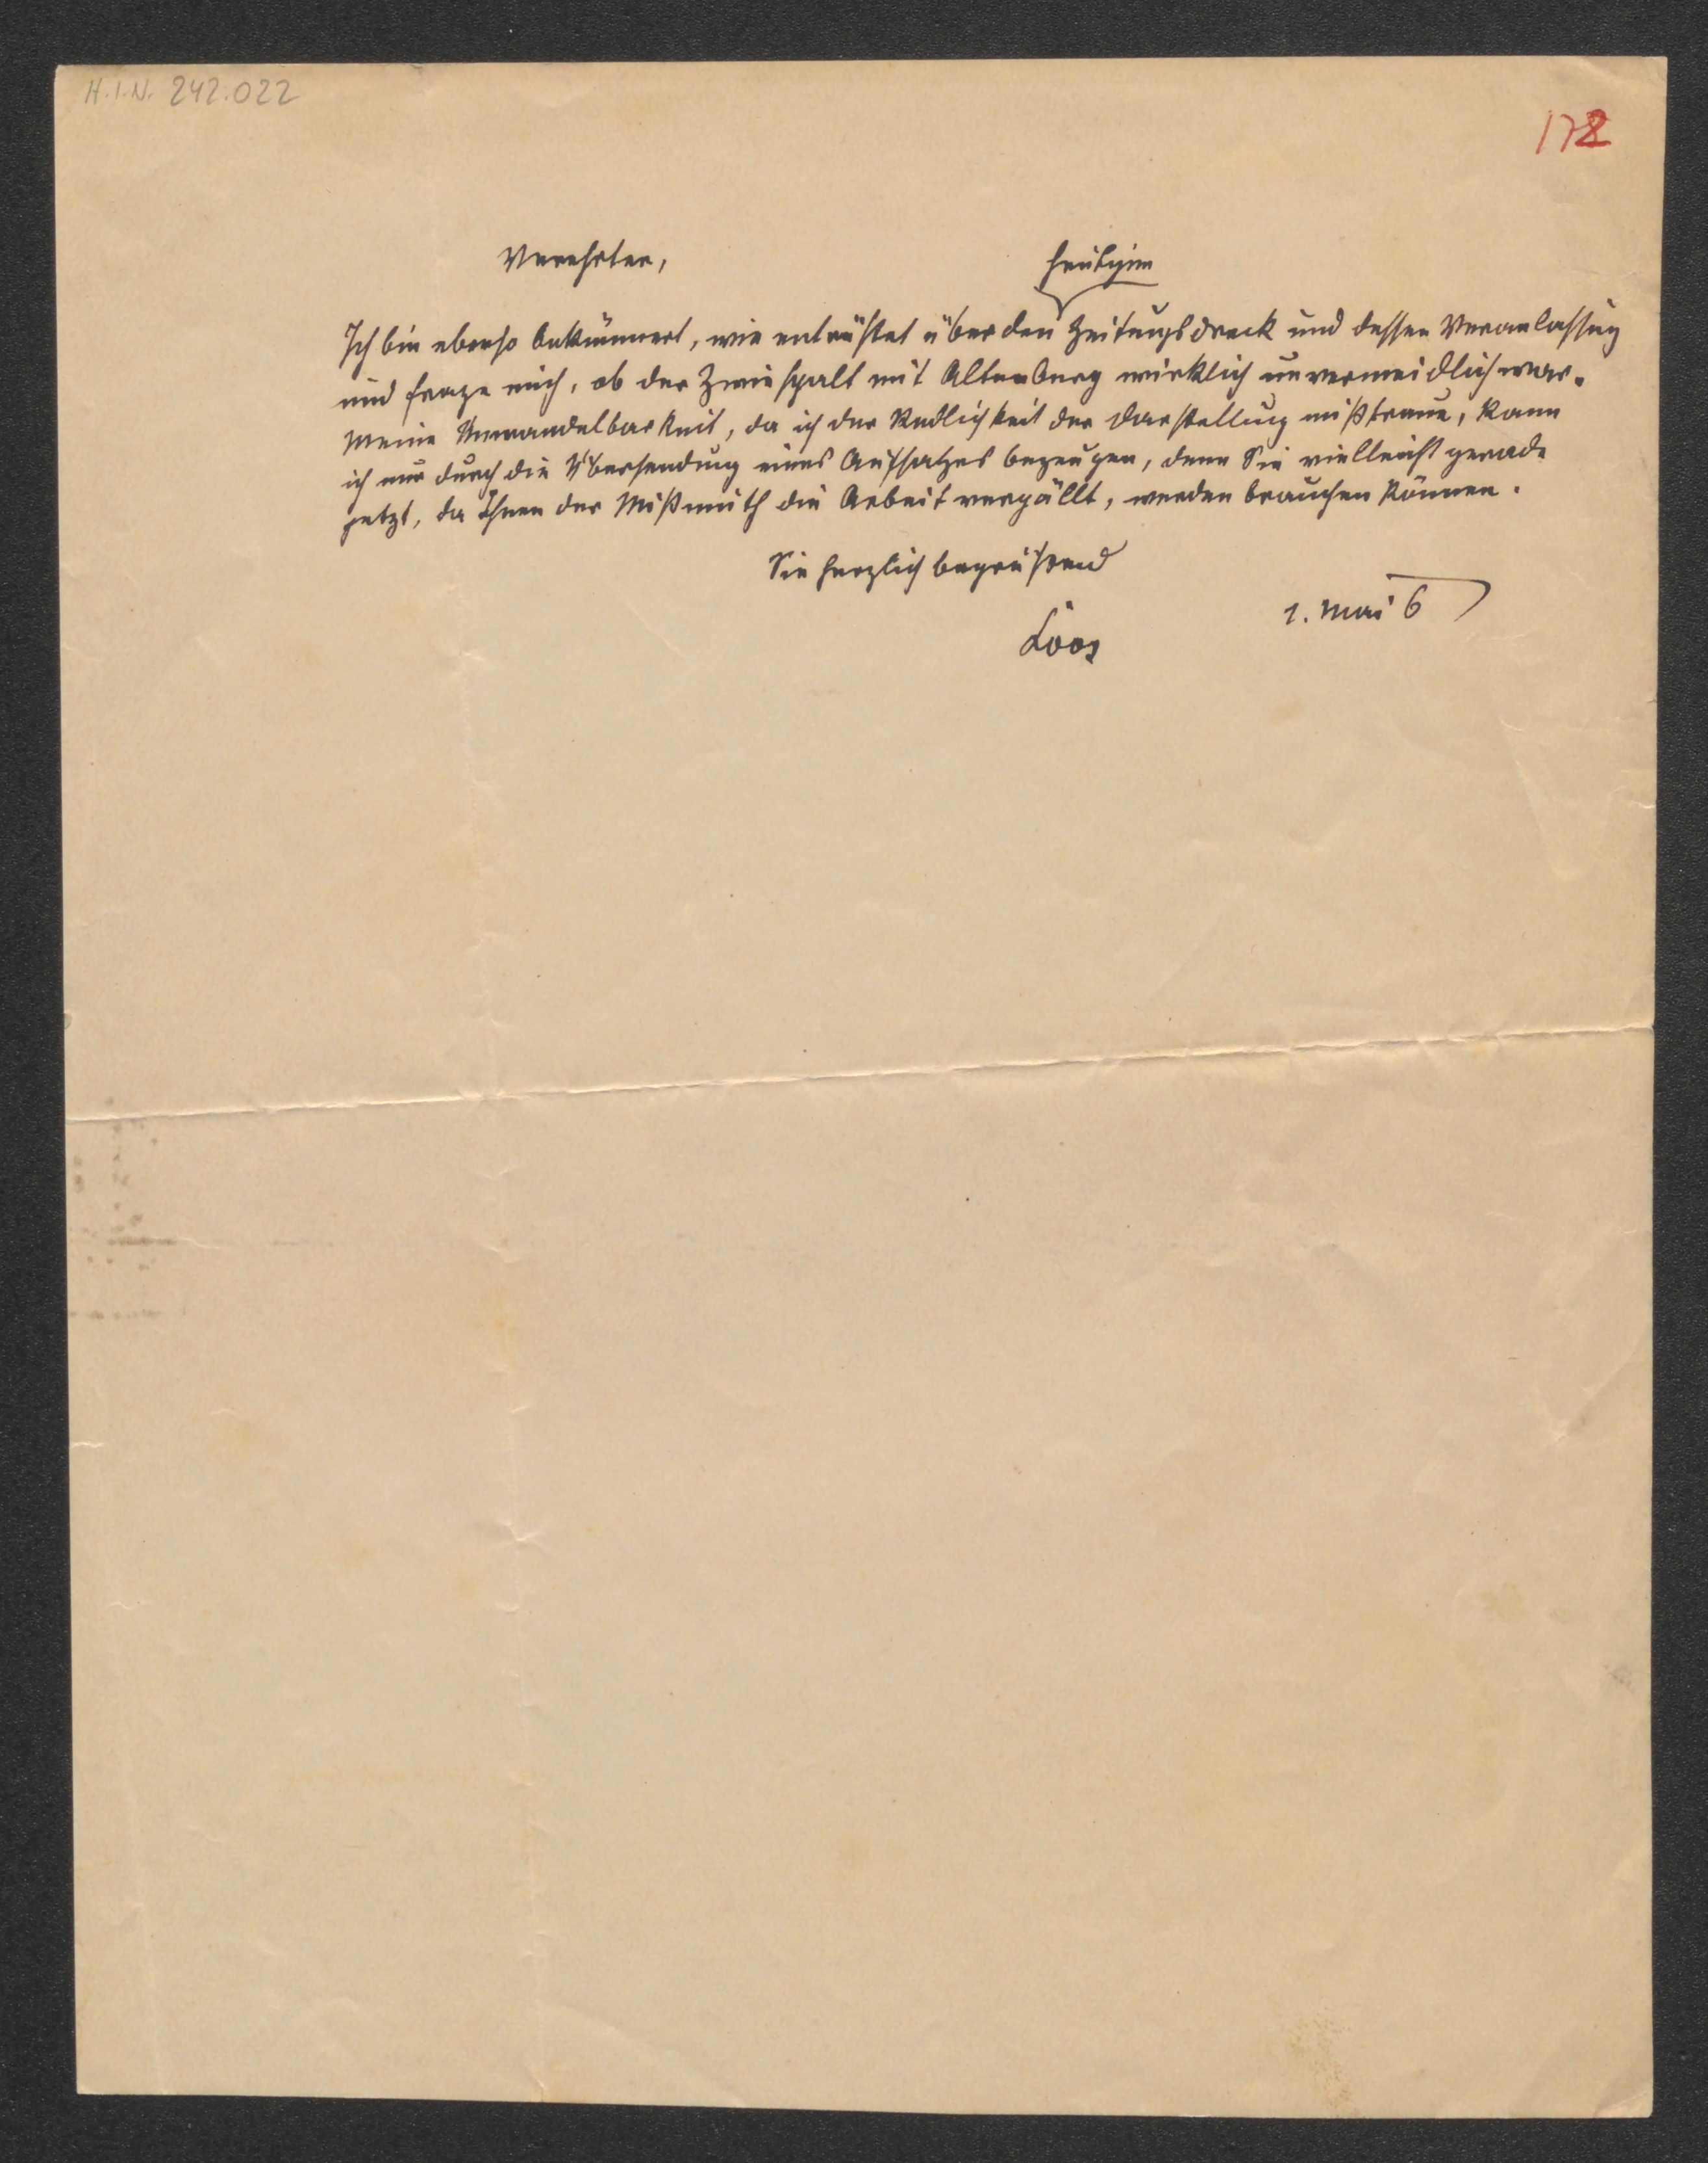 H.I.N. 242.022
172
Verehrter,
heutigen
Ich bin ebenso bekümmert, wie entrüstet über den Zeitungsdreck und dessen Veranlassung
und frage mich, ob der Zwiespalt mit Altenberg wirklich unvermeidlich war.
Meine Unwandelbarkeit, da ich der Redlichkeit der Darstellung mißtraue, kann
ich nur durch die Übersendung eines Aufsatzes bezeugen, denn Sie vielleicht gerade
jetzt, da Ihnen der Mißmuth die Arbeit vergällt, werden brauchen können.
Sie herzlich begrüßend
1. Mai 6
Loos